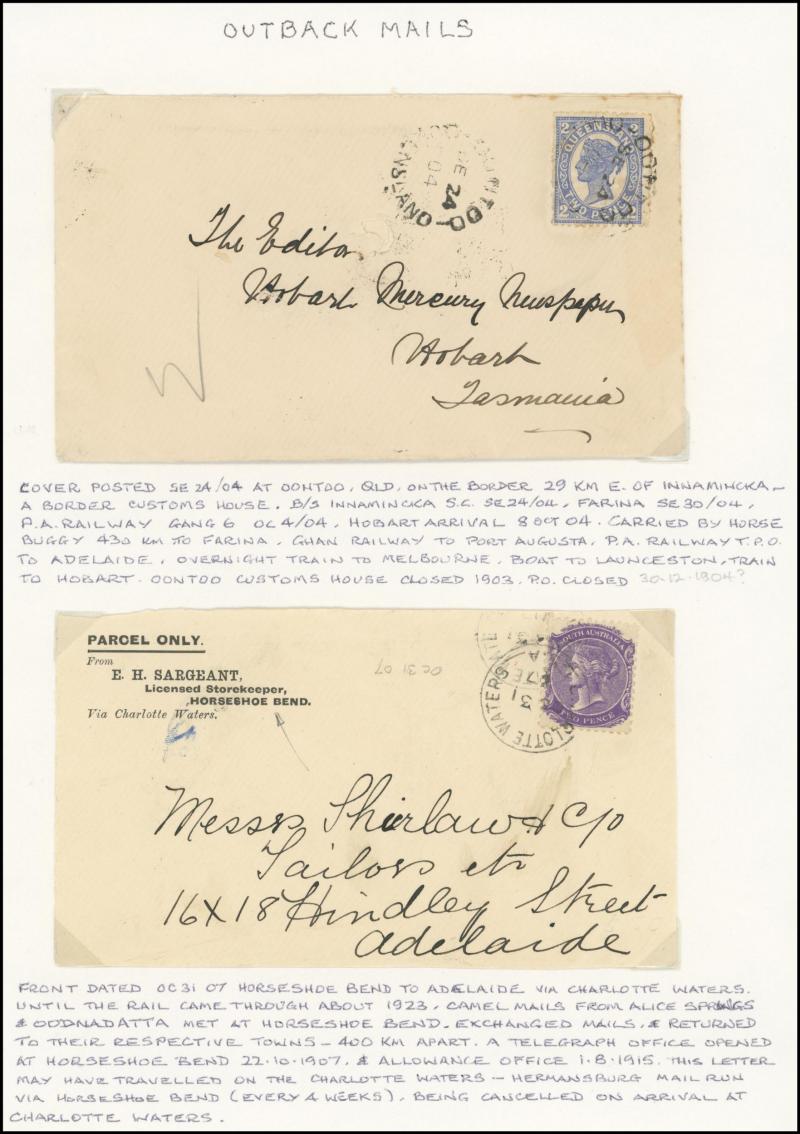 OUTBACK MAILS
QUEENSLAND
2 2
TWO PENCE
2 2
OONTOO
SE 24
04
The Editor
Hobart Mercury Newspaper
Hobart
Tasmania
COVER POSTED SE 24/04 AT OONTOO, QLD, ON THE BORDER 29 KM E. OF INNAMINCKA –
A BORDER CUSTOMS HOUSE. B/S INNAMINCKA S.C. SE24/04, FARINA SE30/04,
P.A. RAILWAY GANG 6 OC 4/04, HOBART ARRIVAL 8 OCT 04. CARRIED BY HORSE
BUGGY 430 KM TO FARINA, GHAN RAILWAY TO PORT AUGUSTA, P.A. RAILWAY T.P.O.
TO ADELAIDE, OVERNIGHT TRAIN TO MELBOURNE, BOAT TO LAUNCESTON, TRAIN
TO HOBART. OONTOO CUSTOMS HOUSE CLOSED 1903. P.O. CLOSED 30.12.1904?
PARCEL ONLY.
From
E. H. SARGEANT,
Licensed Storekeeper,
HORSESHOE BEND.
Via Charlotte Waters.
OC 31 07
SOUTH AUSTRALIA
TWO PENCE
LOTTE WATERS
31
Messrs Shirlaw & C/o
Tailors etc
16 X 18 Hindley Street
Adelaide
FRONT DATED OC 31 07 HORSESHOE BEND TO ADELAIDE VIA CHARLOTTE WATERS.
UNTIL THE RAIL CAME THROUGH ABOUT 1923, CAMEL MAILS FROM ALICE SPRINGS
& OODNADATTA MET AT HORSESHOE BEND, EXCHANGED MAILS, & RETURNED
TO THEIR RESPECTIVE TOWNS – 400 KM APART. A TELEGRAPH OFFICE OPENED
AT HORSESHOE BEND 22.10.1907, & ALLOWANCE OFFICE 1.8.1915. THIS LETTER
MAY HAVE TRAVELLED ON THE CHARLOTTE WATERS – HERMANSBURG MAIL RUN
VIA HORSESHOE BEND (EVERY 4 WEEKS), BEING CANCELLED ON ARRIVAL AT
CHARLOTTE WATERS.